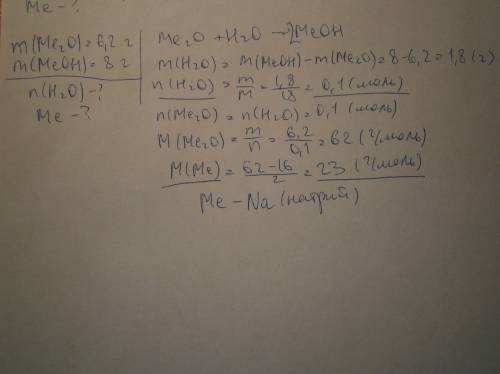 Me - ?
m(Me₂O) = 6,2 г
m(MeOH) = 8 г
n(H₂O) - ?
Me - ?
Me₂O + H₂O → 2MeOH
m(H₂O) = m(MeOH) - m(Me₂O) = 8 - 6,2 = 1,8 (г)
n(H₂O) = m/M = 1,8/18 = 0,1 (моль)
n(Me₂O) = n(H₂O) = 0,1 (моль)
M(Me₂O) = m/n = 6,2/0,1 = 62 (г/моль)
M(Me) = 62-16/2 = 23 (г/моль)
Me - Na (натрий)